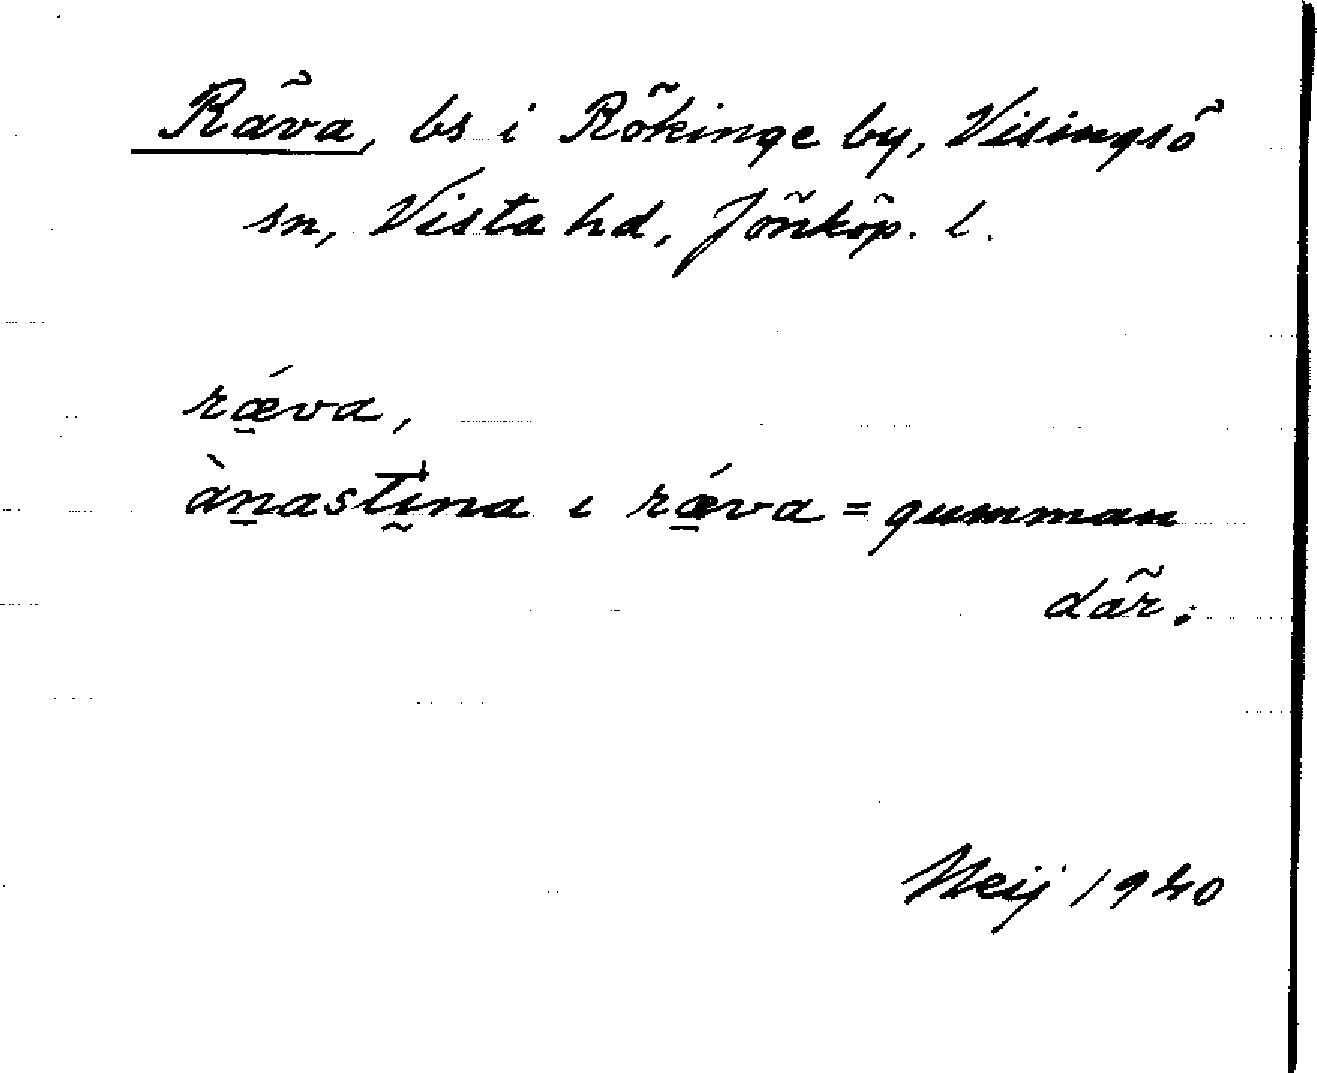 Räva, bs i Rökinge by, Visingsö
sn, Vista hd, Jönköp. l.
rǽ̱va,
àṉastḭ́na ı rǽ̱va = gumman
där.
Neij 1940